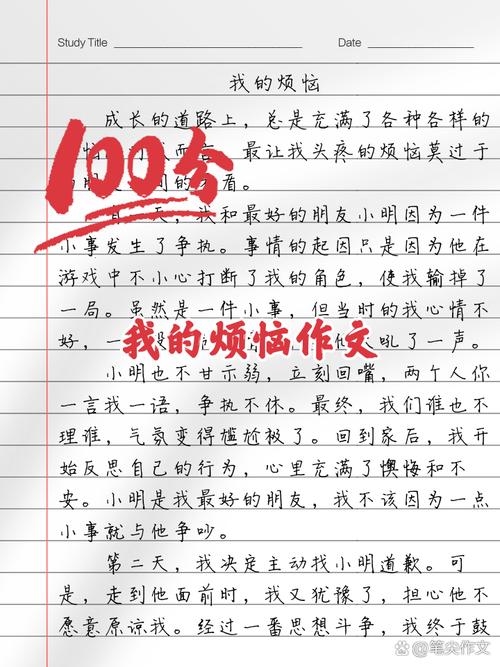 Study Title Date
我的烦恼
成长的道路上，总是充满了各种各样的
最让我头疼的烦恼莫过于
100分
天，我和最好的朋友小明因为一件
小事发生了争执。事情的起因只是因为他在
游戏中不小心打断了我的角色，使我输掉了
一局。虽然是一件小事，但当时的我心情不
好，一 吼了一声。
我的烦恼作文
小明也不甘示弱，立刻回嘴，两个人你
一言我一语，争执不休。最终，我们谁也不
理谁，气氛变得尴尬极了。回到家后，我开
始反思自己的行为，心里充满了懊悔和不
安。小明是我最好的朋友，我不该因为一点
小事就与他争吵。
第二天，我决定主动找小明道歉。可
是，走到他面前时，我又犹豫了，担心他不
愿意原谅我。经过一番思想斗争，我终于鼓
@笔尖作文